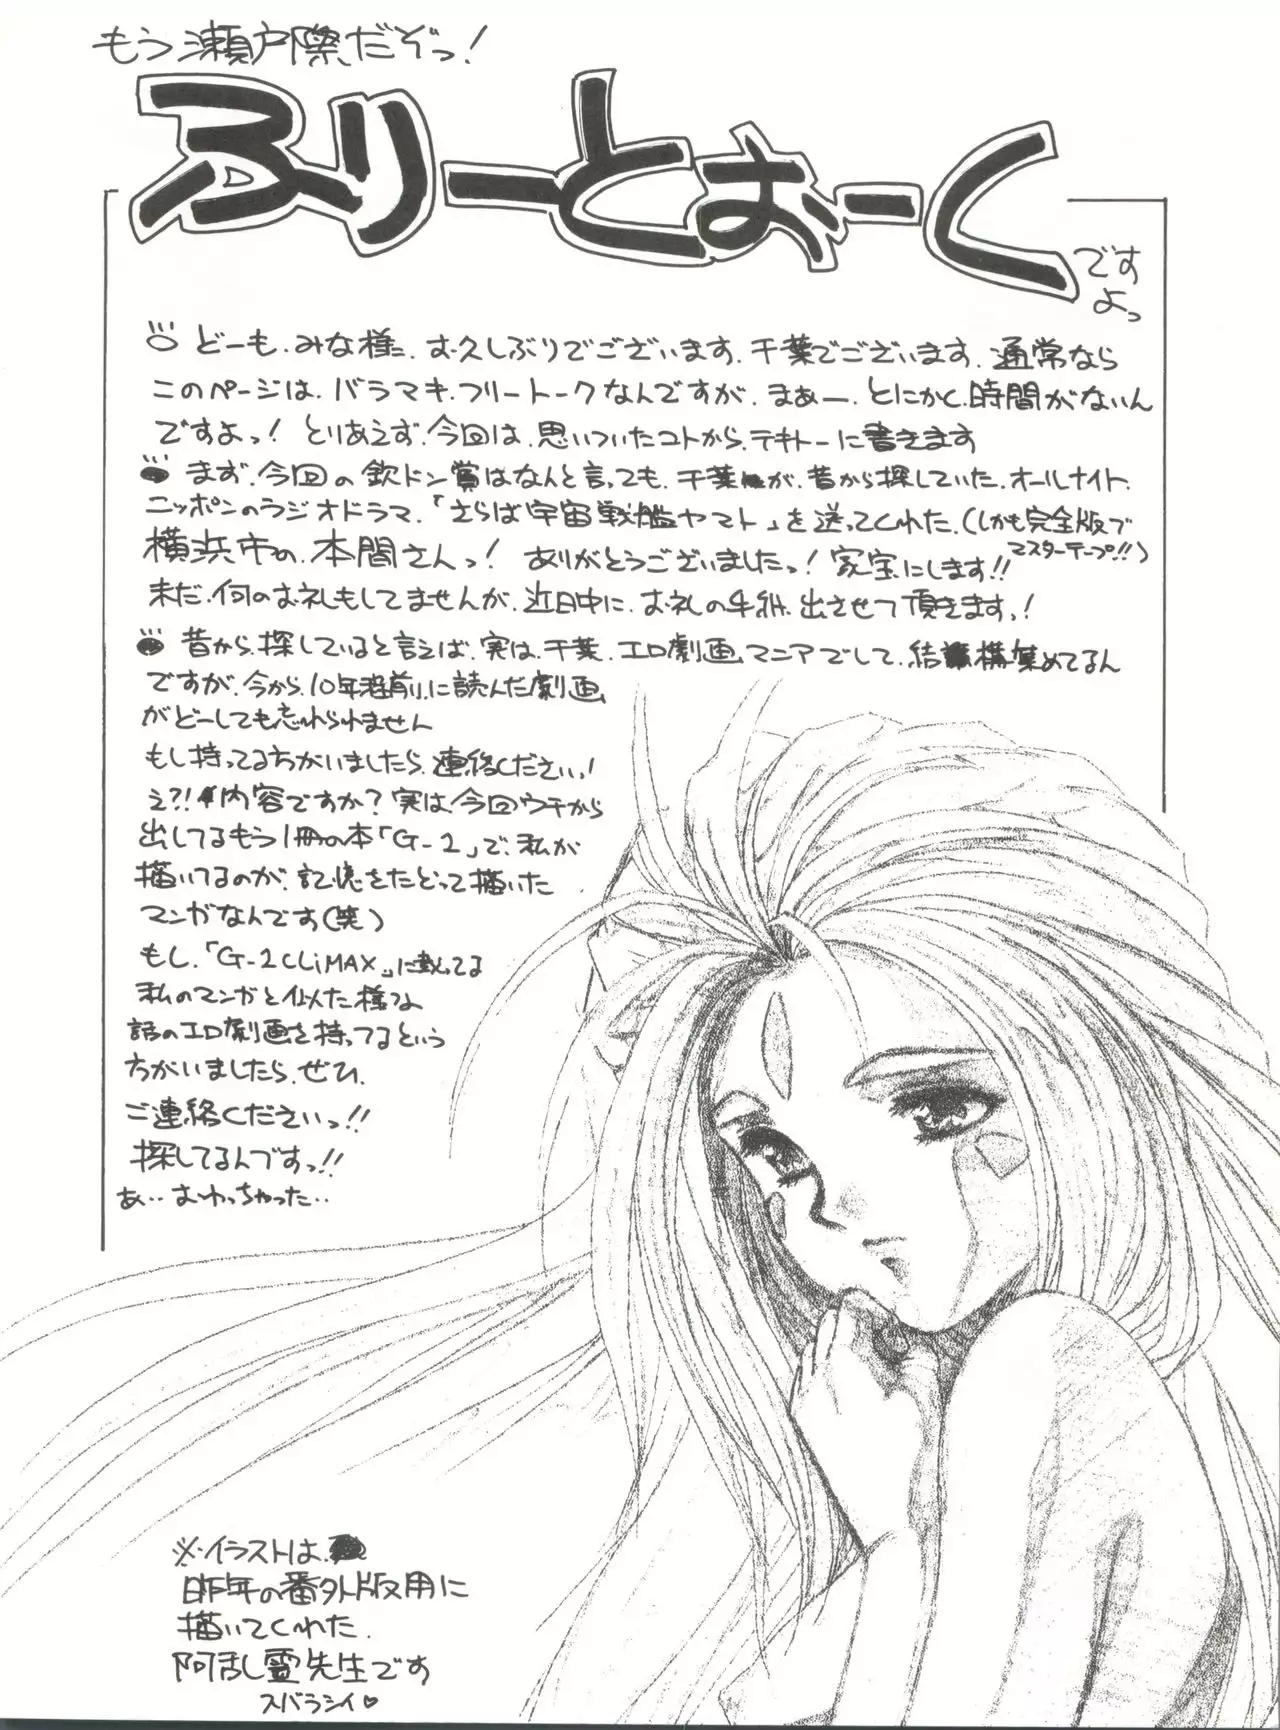 もう瀬戸際だぞっ!
ふりーとぉーく
ですよっ
○どーも、みな様、お久しぶりでございます、千葉でございます、通常なら
このページは、バラマキ、フリートークなんですが、まぁー、とにかく、時間がないん
ですよっ!とりあえず、今回は、思いついたコトから、テキトーに書きます
●まず、今回の欽ドン賞はなんと言っても、千葉が、昔から探していた、オールナイト、
ニッポンのラジオドラマ、「さらば宇宙戦艦ヤマト」を送ってくれた、(しかも完全版で
マスターテープ!!)
横浜市の、本間さんっ!ありがとうございましたっ!家宝にします!!
未だ、何のお礼もしてませんが、近日中に、お礼の手紙、出させて頂きますっ!
●昔から、探していると言えば、実は、千葉、エロ劇画、マニアでして、結構集めてるん
ですが、今から、10年程前に読んだ劇画
がどーしても忘れられません
もし持ってる方がいましたら、連絡くださいっ!
え?!内容ですか?実は、今回ウチから
出してるもう1冊の本「G-2」で、私が
描いてるのが、記憶をたどって描いた
マンガなんです(笑)
もし、「G-2CLiMAX」に載ってる
私のマンガと似た様な
話のエロ劇画を持ってるという
方がいましたら、ぜひ、
ご連絡くださいっ!!
探してるんですっ!!
あ‥おわっちゃった‥
※イラストは、
昨年の番外版用に
描いてくれた、
阿乱霊先生です
スバラシイ♡